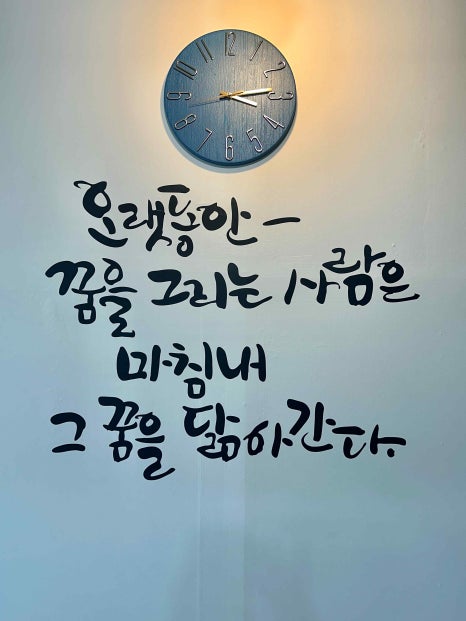 12
1
2
3
4
5
6
7
8
9
10
11
오랫동안 –
꿈을 그리는 사람은
마침내
그 꿈을 닮아간다.